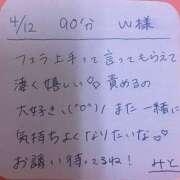 4/12 90分 W様
フェラ上手って言ってもらえて
凄く嬉しい♡ 責めるの
大好き、(°0°)/ また一緒に
気持ちよくなりたいな♡
お誘い待ってるね!
みと